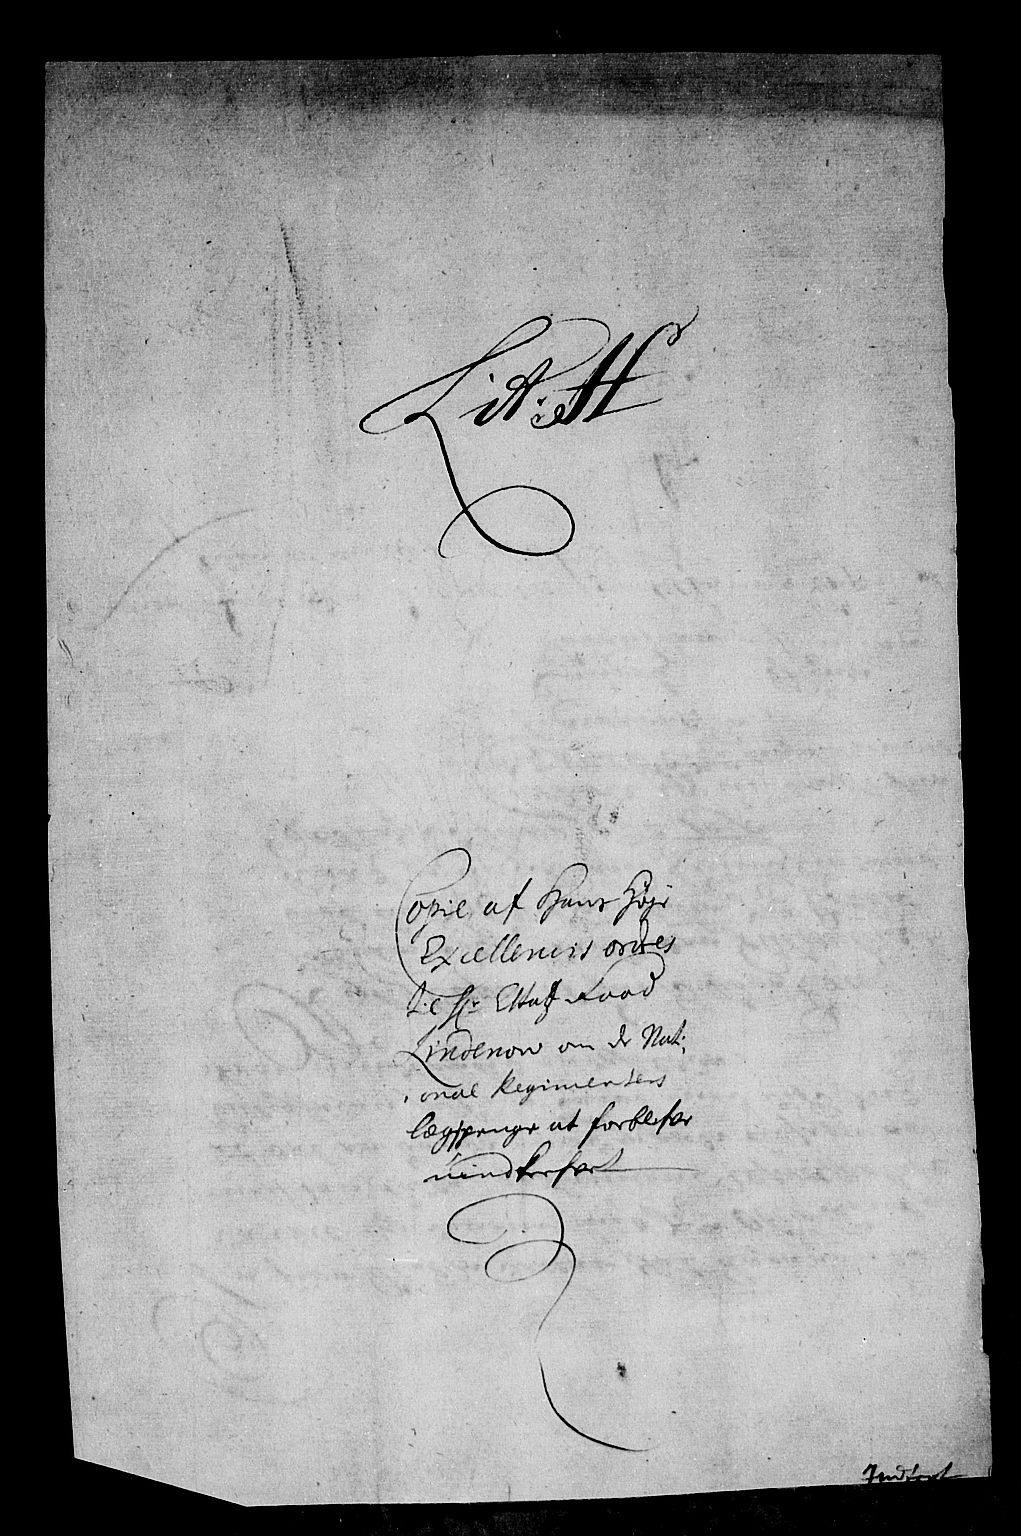 Lit: H
Copie af Hans Høje
Excellencis ordres
til Hr Etatz Raad
Lindenow om de Nat:
ional Regimenters
lægspenge at forblifve
uindkrefvet
Indført